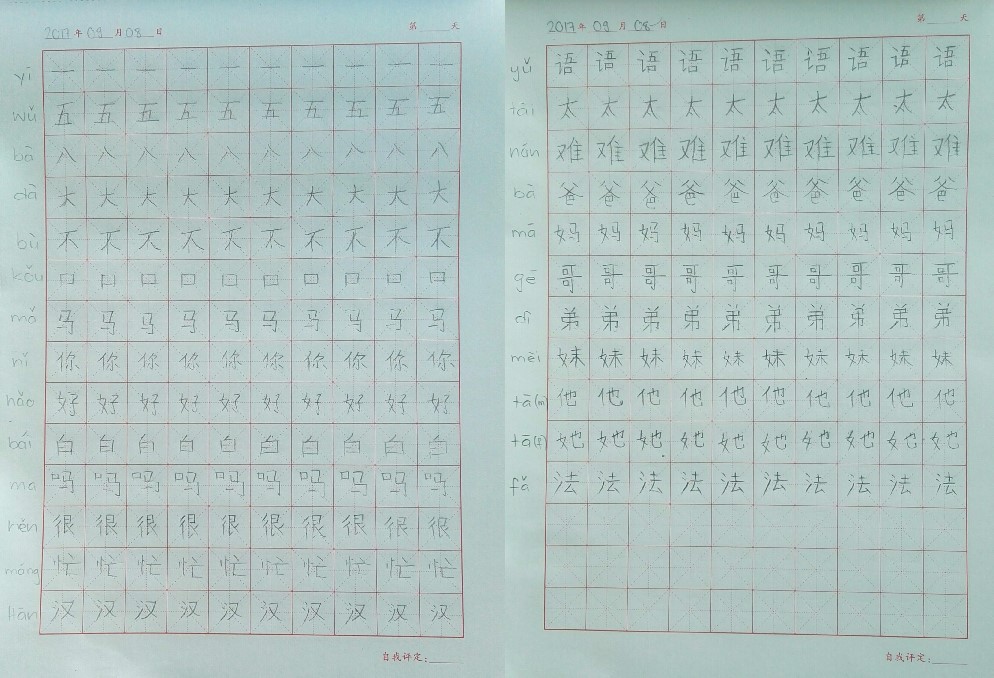 2017年09月08日 第____天
yī 一 一 一 一 一 一 一 一 一 一
wǔ 五 五 五 五 五 五 五 五 五 五
bā 八 八 八 八 八 八 八 八 八 八
dà 大 大 大 大 大 大 大 大 大 大
bù 不 不 不 不 不 不 不 不 不 不
kǒu 口 口 口 口 口 口 口 口 口 口
mǎ 马 马 马 马 马 马 马 马 马 马
nǐ 你 你 你 你 你 你 你 你 你 你
hǎo 好 好 好 好 好 好 好 好 好 好
bái 白 白 白 白 白 白 白 白 白 白
ma 吗 吗 吗 吗 吗 吗 吗 吗 吗 吗
hěn 很 很 很 很 很 很 很 很 很 很
máng 忙 忙 忙 忙 忙 忙 忙 忙 忙 忙
Hàn 汉 汉 汉 汉 汉 汉 汉 汉 汉 汉
自我评定:____
2017年09月08日 第____天
yǔ 语 语 语 语 语 语 语 语 语 语
tài 太 太 太 太 太 太 太 太 太 太
nán 难 难 难 难 难 难 难 难 难 难
bà 爸 爸 爸 爸 爸 爸 爸 爸 爸 爸
mā 妈 妈 妈 妈 妈 妈 妈 妈 妈 妈
gē 哥 哥 哥 哥 哥 哥 哥 哥 哥 哥
dì 弟 弟 弟 弟 弟 弟 弟 弟 弟 弟
mèi 妹 妹 妹 妹 妹 妹 妹 妹 妹 妹
tā 他 他 他 他 他 他 他 他 他 他
tā 她 她 她 她 她 她 她 她 她 她
fǎ 法 法 法 法 法 法 法 法 法 法
自我评定:____